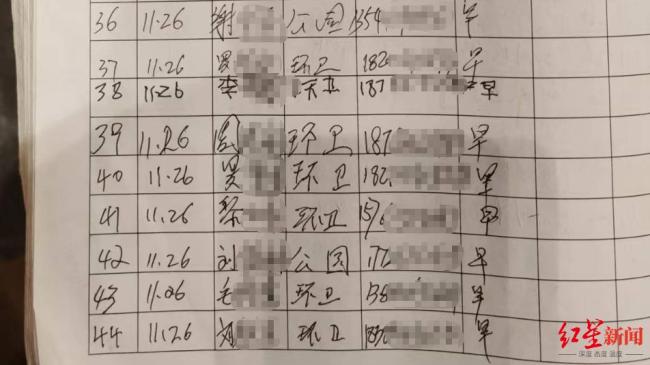 36 11.26 谢 公园 1354 早
37 11.26 罗 环卫 182 早
38 11.26 李 环卫 187 早
39 11.26 周 环卫 187 早
40 11.26 罗 环卫 182 早
41 11.26 黎 环卫 1576 早
42 11.26 刘 公园 172 早
43 11.26 毛 环卫 138 早
44 11.26 刘 环卫 早
红星新闻
深度 态度 温度